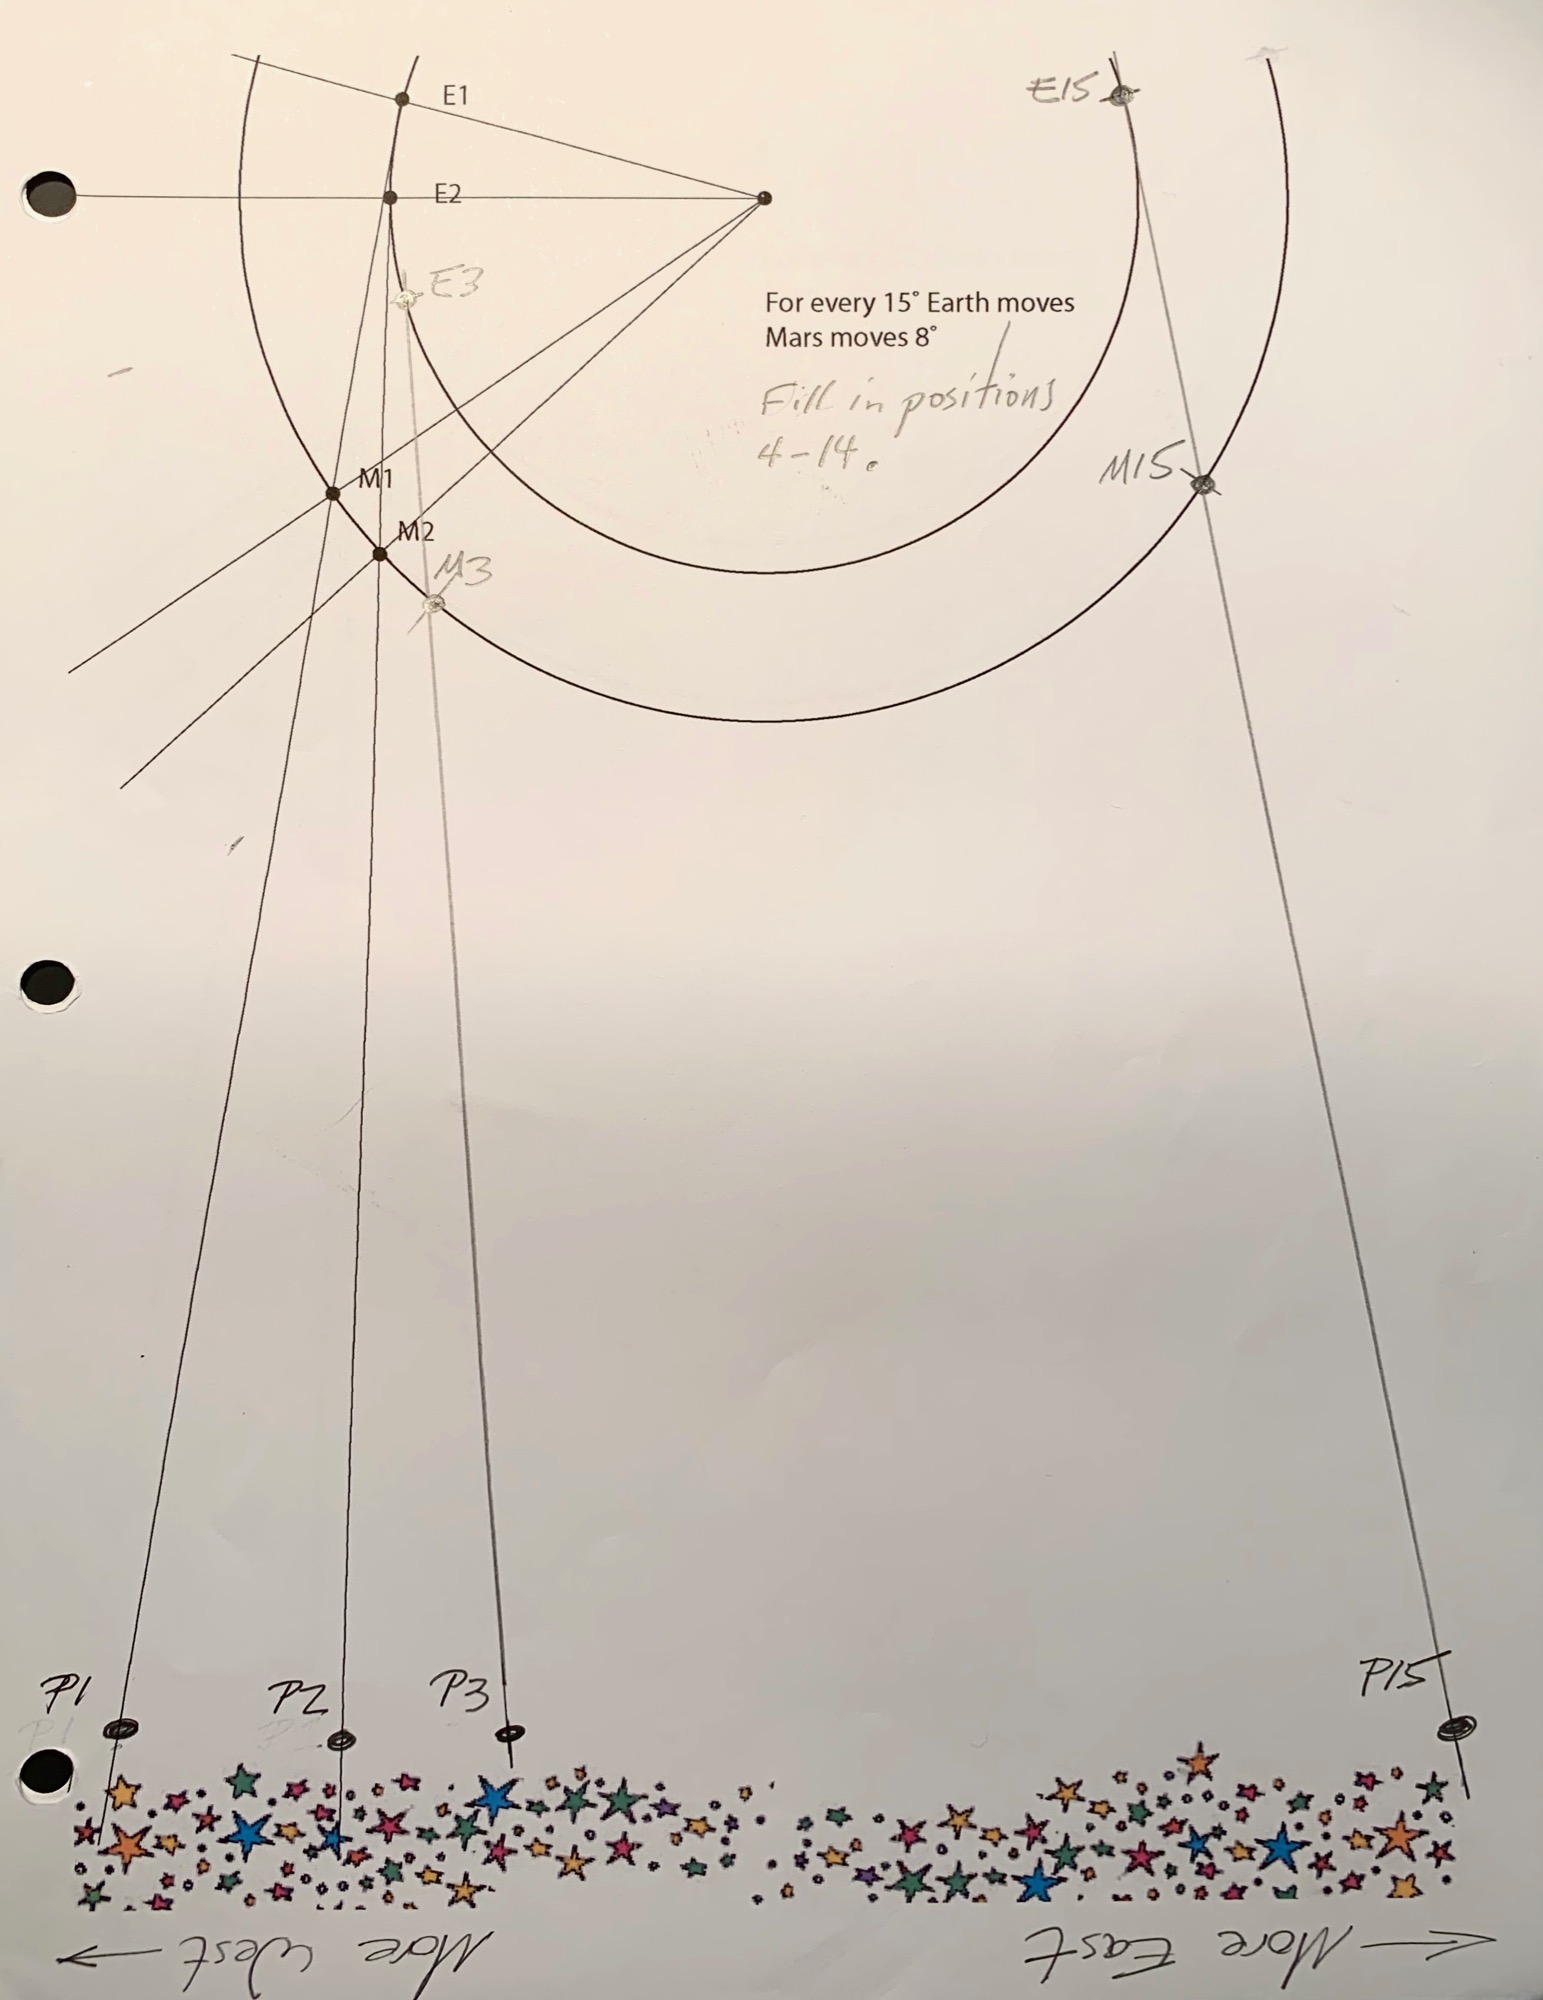 E1
E15
E2
E3
For every 15° Earth moves
Mars moves 8°
Fill in positions
4-14.
M1
M15
M2
M3
P1
P2
P3
P15
P1
P2
More West
More East